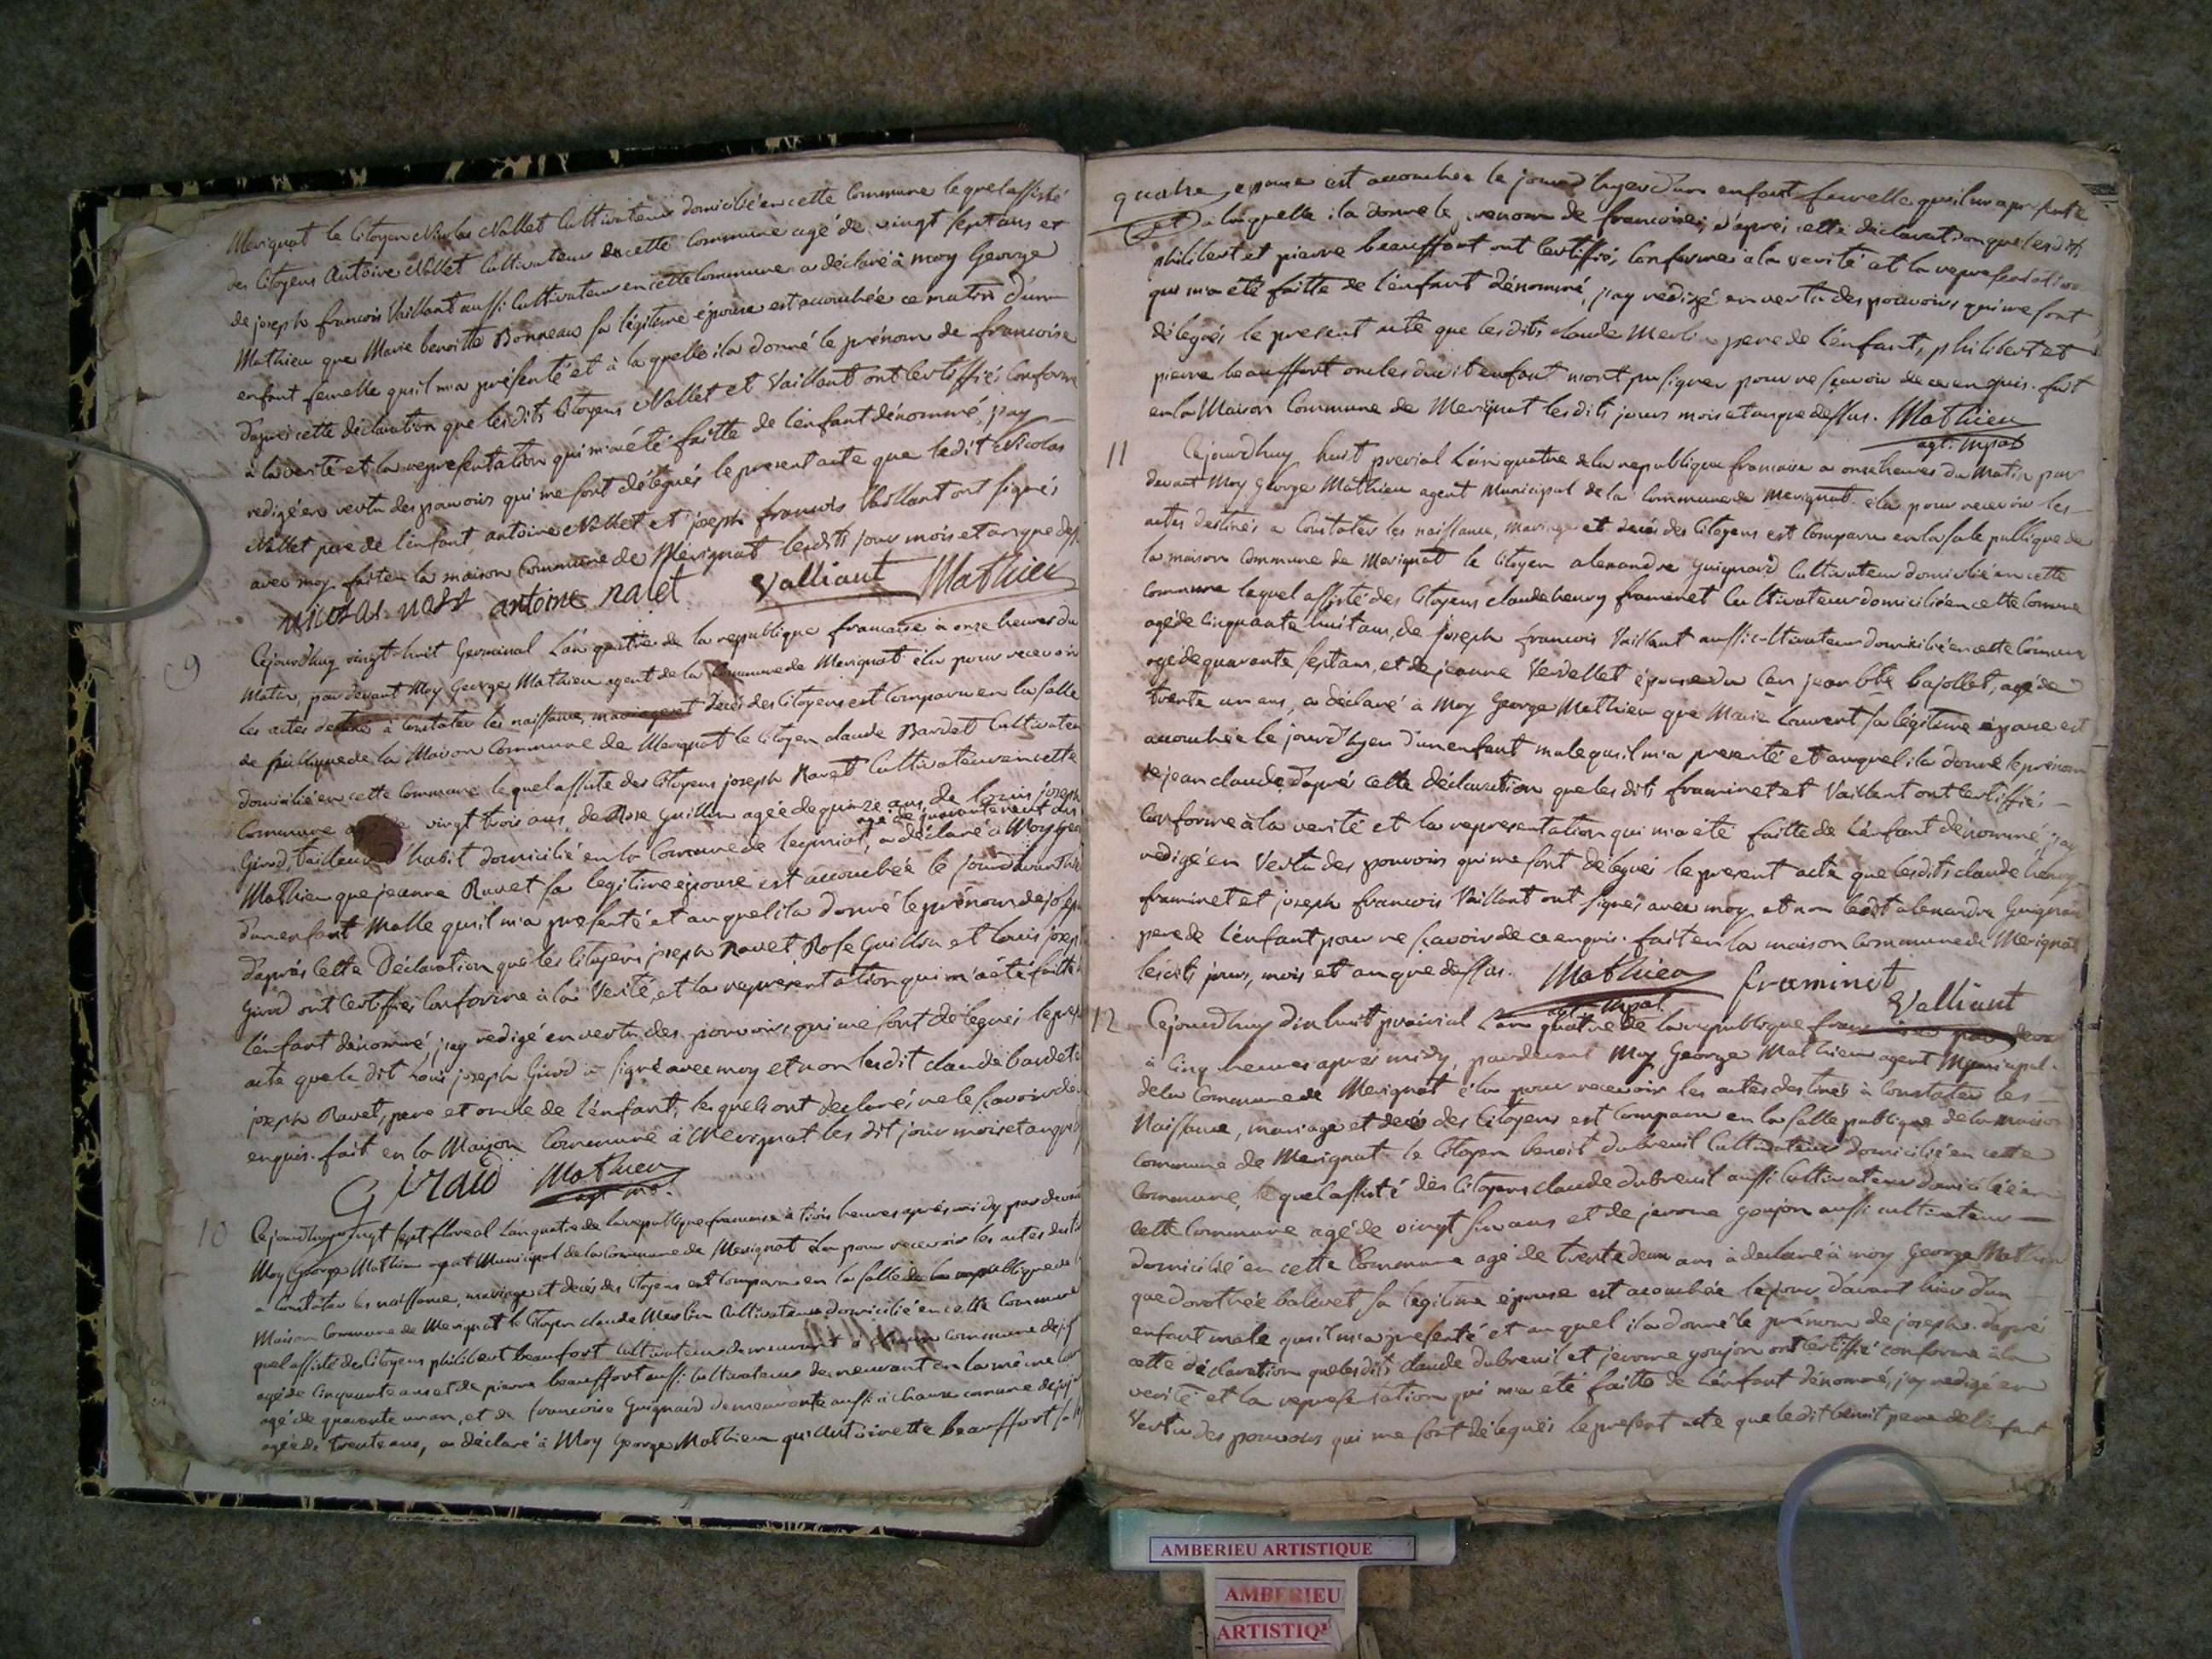 Merignat le Citoyen Nicolas Nallet Cultivateur domicilié en cette Commune lequel assisté
des Citoyens Antoine Nallet Cultivateur en cette Commune agé de vingt sept ans et
de joseph francois Vaillant aussi Cultivateur en cette Commune a déclaré à moy George
Mathieu que Marie benoitte Bonneau sa légitime épouse est accouchée ce matin d'un
enfant femelle quil m'a présenté et à laquelle il a donné le prénom de francoise
d'aprei cette déclaration que lesdits Citoyens Nallet et Vaillant ont certiffiés Conforme
à la verité et la representation qui m'a été faitte de l'enfant dénommé, j'ay
redigé en vertu des pouvoirs qui me sont délégués le present acte que ledit Nicolas
Nallet pere de l'enfant, antoine Nallet et joseph francois Vaillant ont signés
avec moy. fait en la maison Commune de Mérignat lesdits jour mois et an que dess
antoine nalet Valliant Mathieu
9 Cejourdhuy vingt-huit Germinal L'an quatre de la republique francaise à onze heures du
Matin, par devant Moy George Mathieu agent de la Commune de Merignat élu pour recevoir
les actes destinés à Constater les naissance, mariage et Décès des Citoyens est Comparu en la salle
de publique de la Maison Commune de Merignat le Citoyen claude Bardet Cultivateur
domicilié en cette Commune lequel assisté des Citoyens joseph Ravet Cultivateur en cette
Commune vingt trois ans, de Rose Guillon agée de quinze ans, de louis joseph
agé de quarante neuf ans
Girod, tailleur d'habit domicilié en la Commune de , a déclaré à Moy George
Mathieu que jeanne Ravet sa legitime épouse est accouchée le jour
d'un enfant Malle quil m'a presenté et auquel il a donné le prénom de joseph
d'aprés cette Déclaration que les Citoyens joseph Ravet, Rose Guillon et louis joseph
Girod ont Certiffiés Conforme à la Verité, et la représentation qui m'a été faitte
l'enfant dénommé, j'ay redigé en vertu des pouvoirs qui me sont délégués le
acte que le dit Louis joseph Girod a signé avec moy et non lesdit claude bardet
joseph Ravet, pere et oncle de l'enfant, lesquels ont declarés ne le scavoir de
enquis. fait en la Maison Commune à Merignat les dit jour mois et an que
Giraud Mathieu
agt
10 Cejourdhuy vingt sept floreal L'an quatre de la republique francaise à trois heures aprés midy par devant
Moy George Mathieu agent Municipal de la Commune de Merignat élu pour recevoir les actes
a Constater les naissance, mariage et decès des Citoyens est Comparu en la salle publique de
Maison Commune de Merignat le Citoyen claude Merlin Cultivateur domicilié en cette Commune
quel assisté des Citoyens philibert beauffort Cultivateur demeurant à Commune de
agé de Cinquante ans et de pierre beauffort aussi Cultivateur demeurant en la même
agé de quarante un an, et de francoise Guignard demeurante aussi à Commune de
agée de trente ans, a déclaré à Moy George Mathieu qu'Antoinette beauffort sa
quatre épouse est accouchée le jour d'hyer d'un enfant femelle quil m'a presenté
et a laquelle il a donné le prenom de francoise, d'aprés cette déclaration que lesdits
philibert et pierre beauffort ont Certiffiés Conforme a la verité et la representation
qui m'a été faitte de l'énfant dénommé, j'ay redigé en vertu des pouvoirs qui me sont
délegués le present acte que lesdits claude Merlin pere de l'enfant, philibert et
pierre beauffort oncles dudit enfant n'ont pu signer pour ne scavoir de ce enquis. fait
en la Maison Commune de Merignat lesdits jours mois et an que dessus. Mathieu
agt. mpal
11 Cejourdhuy huit prerial L'an quatre de la republique francaise a onze heures du Matin par
devant Moy George Mathieu agent Municipal de la Commune de Merignat élu pour recevoir les
actes destinés a Constater les naissance, mariage et decés des Citoyens est Comparu en la sale publique de
la maison Commune de Merignat le Citoyen alexandre Guignard Cultivateur domicilié en cette
Commune lequel assisté des Citoyens claude henry framinet Cultivateur domicilié en cette Comune
agé de Cinquante huit ans, de joseph francois Vaillant aussi cultivateur domicilié en cette Comune
agé de quarante sept ans, et de jeanne Verdellet épouse du Cen jean bte bajollet, agé de
trente un ans, a déclaré à Moy George Mathieu que Marie Louvent sa légitime épouse est
accouchée le jourd'hyer d'un enfant male quil m'a presenté et auquel il a donné le prénom
de jean claude, d'aprés cette déclaration que les dits framinet et Vaillant ont Certiffiés
Conforme à la verité et la representation qui m'a été faitte de l'énfant dénommé, j'ay
redigé en Vertu des pouvoirs qui me sont délégués le present acte que lesdits claude henry
framinet et joseph francois Vaillant ont signés avec moy et non ledit alexandre Guignard
pere de l'énfant pour ne scavoir de ce enquis. fait en la maison Commune de Merignat
lesdits jours, mois et an que dessus. Mathieu framinet
agt mpal Valliant
12 Cejourdhuy dix huit prairial L'an quatre de la republique
à Cinq heures aprés midy, par devant Moy George Mathieu agent Municipal
de la Commune de Merignat élu pour recevoir les actes destinés à Constater les
Naissance, mariage et decés des Citoyens est Comparu en la salle publique de la maison
Commune de Merignat le Citoyen benoit dubreuil Cultivateur domicilié en cette
Commune, lequel assisté des Citoyens claude dubreuil aussi Cultivateur domicilié en
cette Commune agé de vingt six ans et de jerome goujon aussi cultivateur
domicilié en cette Commune agé de trente deux ans à declaré à moy George Mathieu
que dorothée balivet sa legitime épouse est acouchée le jour d'avant hier d'un
enfant male quil m'a presenté et auquel il a donné le prénom de joseph. d'aprés
cette déclaration que lesdits claude dubreuil et jerome goujon ont Certiffié conforme à la
verité et la representation qui m'a été faitte de l'énfant dénommé, j'ay redigé en
Vertu des pouvoirs qui me sont délegués le present acte que ledit benoit pere de l'énfant
AMBERIEU ARTISTIQUE
AMBERIEU
ARTISTIQ